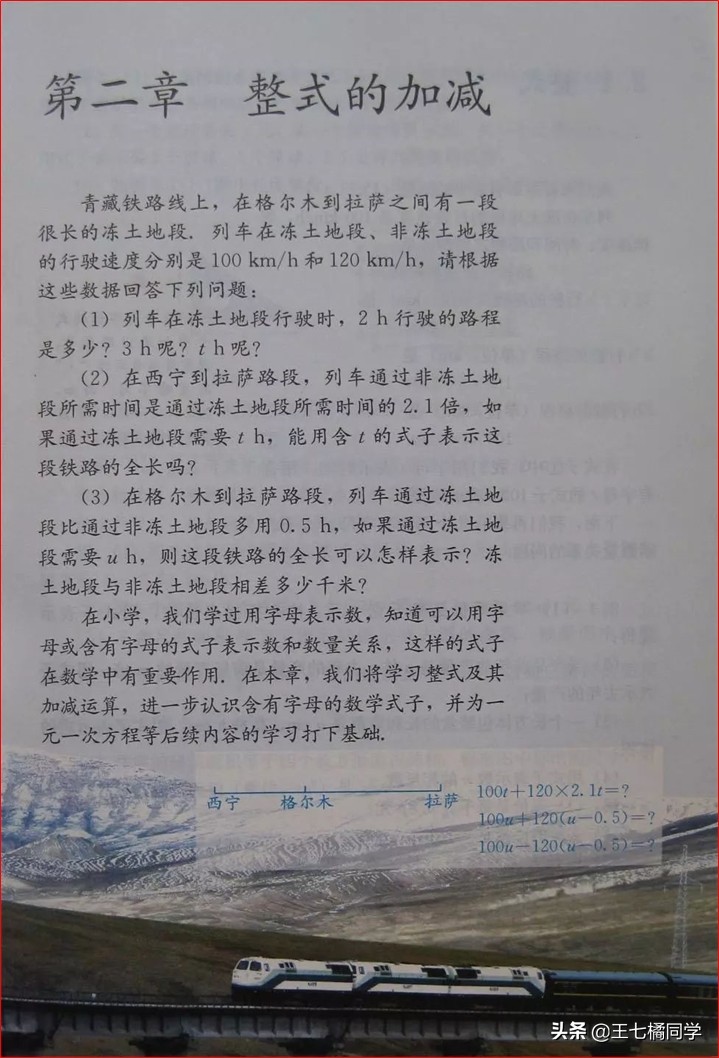 第二章 整式的加减
青藏铁路线上，在格尔木到拉萨之间有一段
很长的冻土地段. 列车在冻土地段、非冻土地段
的行驶速度分别是 100 km/h 和 120 km/h，请根据
这些数据回答下列问题：
(1) 列车在冻土地段行驶时，2 h 行驶的路程
是多少？3 h 呢？t h 呢？
(2) 在西宁到拉萨路段，列车通过非冻土地
段所需时间是通过冻土地段所需时间的 2.1 倍，如
果通过冻土地段需要 t h，能用含 t 的式子表示这
段铁路的全长吗？
(3) 在格尔木到拉萨路段，列车通过冻土地
段比通过非冻土地段多用 0.5 h，如果通过冻土地
段需要 u h，则这段铁路的全长可以怎样表示？冻
土地段与非冻土地段相差多少千米？
在小学，我们学过用字母表示数，知道可以用字
母或含有字母的式子表示数和数量关系，这样的式子
在数学中有重要作用. 在本章，我们将学习整式及其
加减运算，进一步认识含有字母的数学式子，并为一
元一次方程等后续内容的学习打下基础.
西宁 格尔木 拉萨
100t+120×2.1t=?
100u+120(u−0.5)=?
100u−120(u−0.5)=?
头条 @王七橘同学